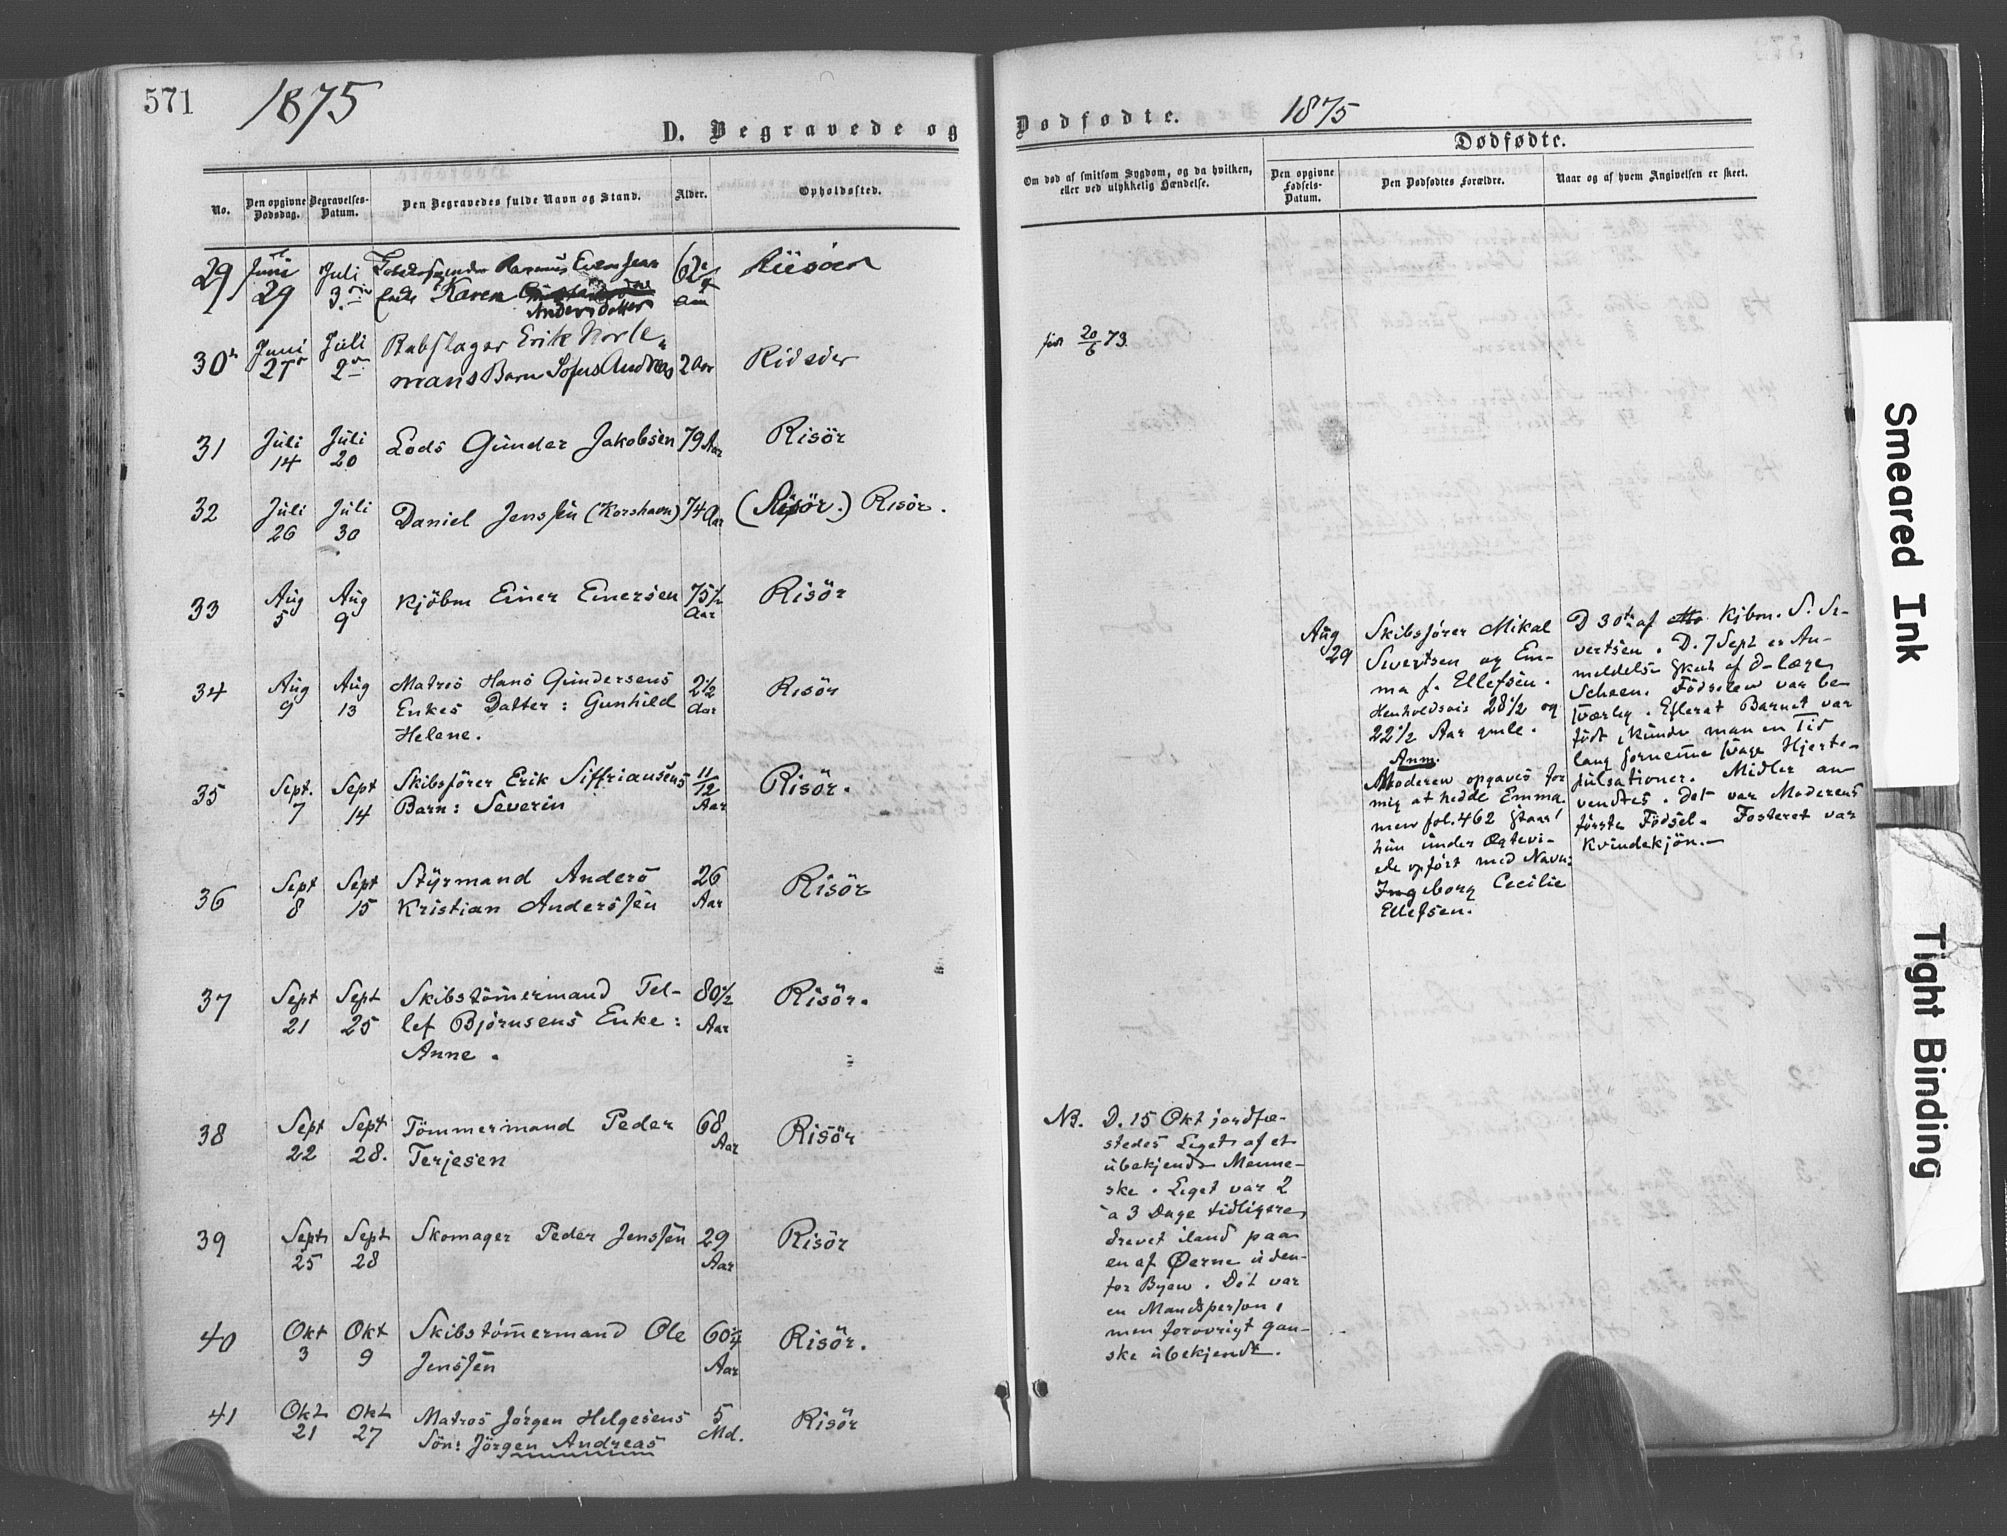 571
1875
D. Begravede og
No.
Den opgivne Dødsdag.
Begravelses-Datum.
Den Begravedes fulde Navn og Stand.
Alder.
Opholdssted.
29
Juni 29
Juli 3
Rasmus Evensens
Enke Karen
Andersdatter
62
Riisöer
30
Juni 25
Juli 2
Rebslager Erik Norle-
mans Barn Sofus Andreas
2 Aar
Risöer
31
Juli 14
Juli 20
Lods Gunder Jakobsen
79 Aar
Risör
32
Juli 26
Juli 30
Daniel Jenssen (Korshavn)
74 Aar
(Risör.) Risör.
33
Aug 5
Aug 9
Kjöbm Einer Einersen
75½ Aar
Risör
34
Aug 9
Aug 13
Matros Hans Gundersens
Enkes Datter: Gunhild
Helene.
2½ Aar
Risör
35
Sept. 7
Sept 14
Skibsförer Erik Siffriansens
Barn: Severin
11/12 Aar
Risör.
36
Sept 8
Sept 15
Styrmand Anders
Kristian Anderssen
26 Aar
Risör
37
Sept 21
Sept 25
Skibstömmermand Tel-
lef Björnsens Enke:
Anne.
80½ Aar
Risör.
38
Sept 22
Sept 28.
Tömmermand Peder
Terjesen
68 Aar
Risör
39
Sept 25
Sept 28
Skomager Peder Jenssen
29 Aar
Risör
40
Okt 3
Okt 9
Skibstömmermand Ole
Jenssen
60¼ Aar
Risör.
41
Okt 21
Okt 27
Matros Jörgen Helgesens
Sön: Jörgen Andreas
5 Md.
Risör
Dødfødte.
1875
Dødfødte.
Om død af smitsom Sygdom, og da hvilken,
eller ved ulykkelig Hændelse.
Den opgivne Fødsels-Datum.
Den Dødfødtes Forældre.
Naar og af hvem Angivelsen er skeet.
født 20/6 73.
Aug 29
Skibsförer Mikal
Severtsen og Em-
ma f. Ellefsen.
Henholdsvis 28½ og
22½ Aar gmle.
Anm.
Moderen opgaves for
mig at hedde Emma
men fol. 462 staar
hun under Ægtevi-
ede opfört med Navn:
Ingeborg Cecilie
Ellefsen.
D 30te af Kjbm. S. Se-
vertsen. D. 7 Sept er An-
meldelse skeet af D-læge
Scheen. Födselen var be-
sværlig. Efterat Barnet var
födt, kunde man en Tid
lang fornemme svage Hjerte-
pulsationer. Midler an-
vendtes. Det var Moderens
förste Födsel. Fosteret var
Kvindekjön.
NB. D. 15 Okt jordfæ-
stedes Liget af et
ubekjendt Menne-
ske. Liget var 2
à 3 Dage tidligere
drevet iland paa
en af Øerne uden-
for Byen. Det var
en Mandsperson,
men forövrigt gan-
ske ubekjendt.
Smeared Ink
Tight Binding